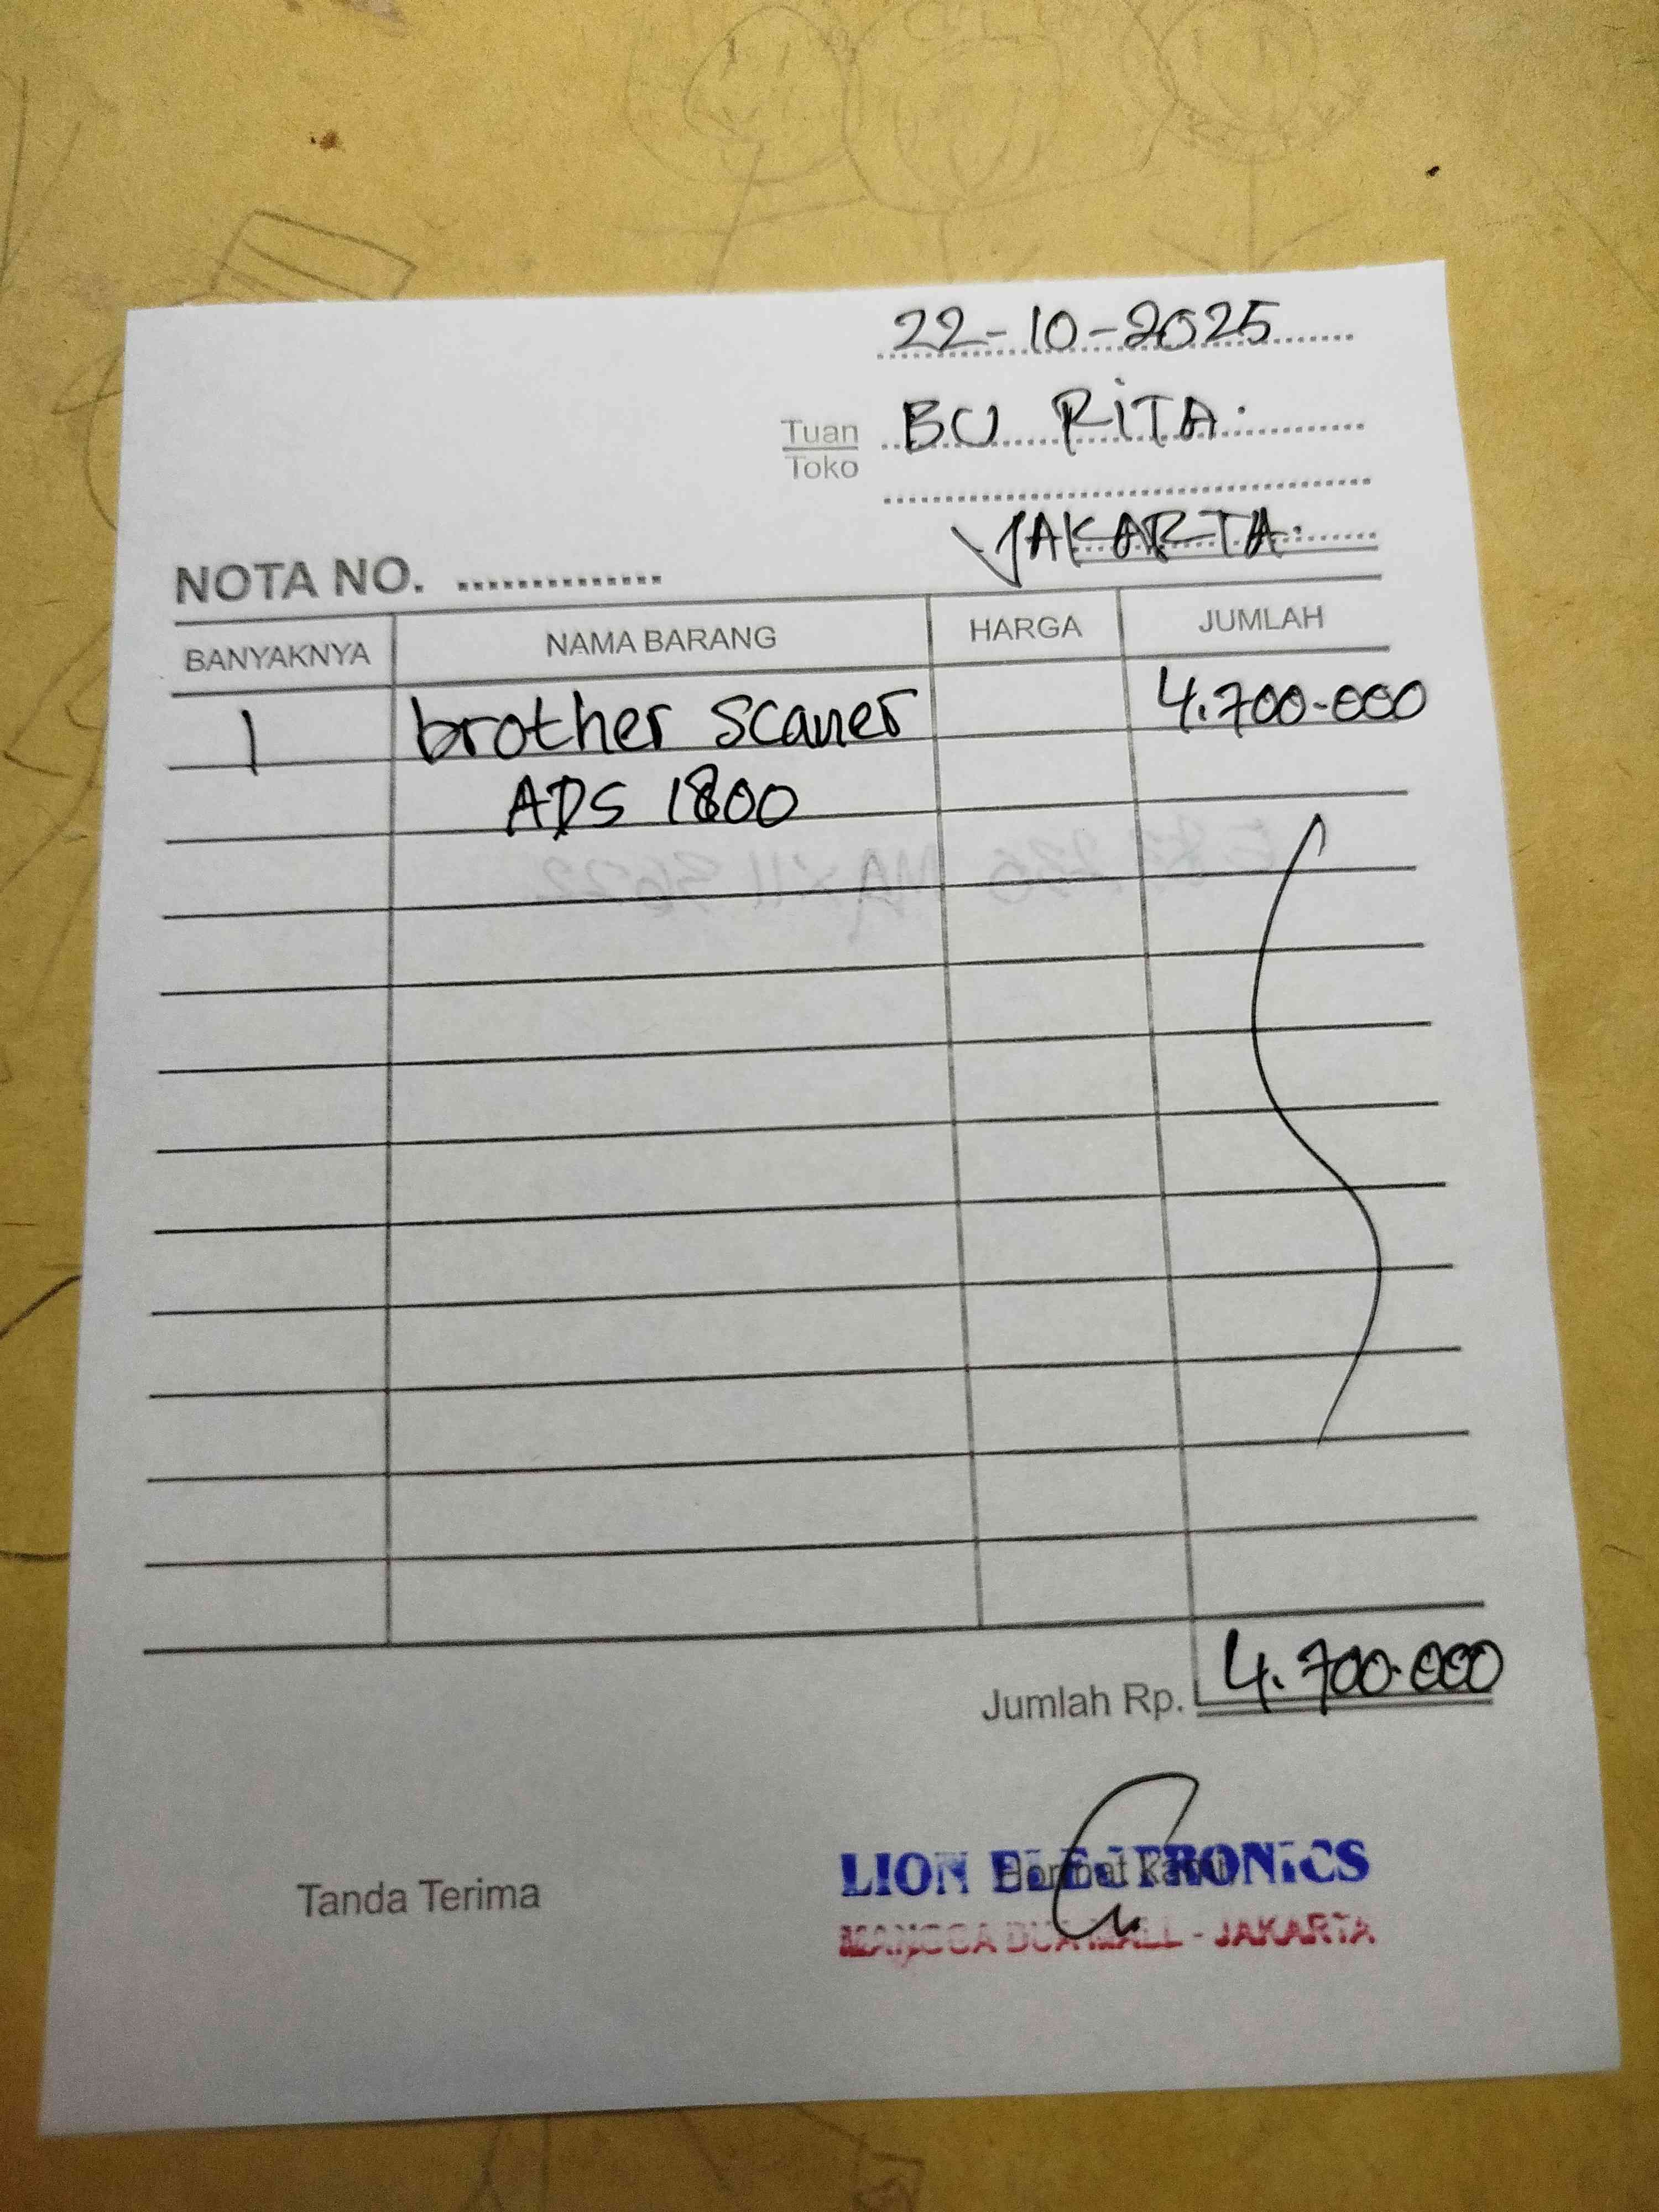 22-10-2025
Tuan BU RiTA
Toko
JAKARTA
NOTA NO.
BANYAKNYA NAMA BARANG HARGA JUMLAH
1 brother scaner 4.700.000
ADS 1800
Jumlah Rp. 4.700.000
Tanda Terima Hormat kami
LION ELECTRONiCS
MANGGA DUA MALL - JAKARTA